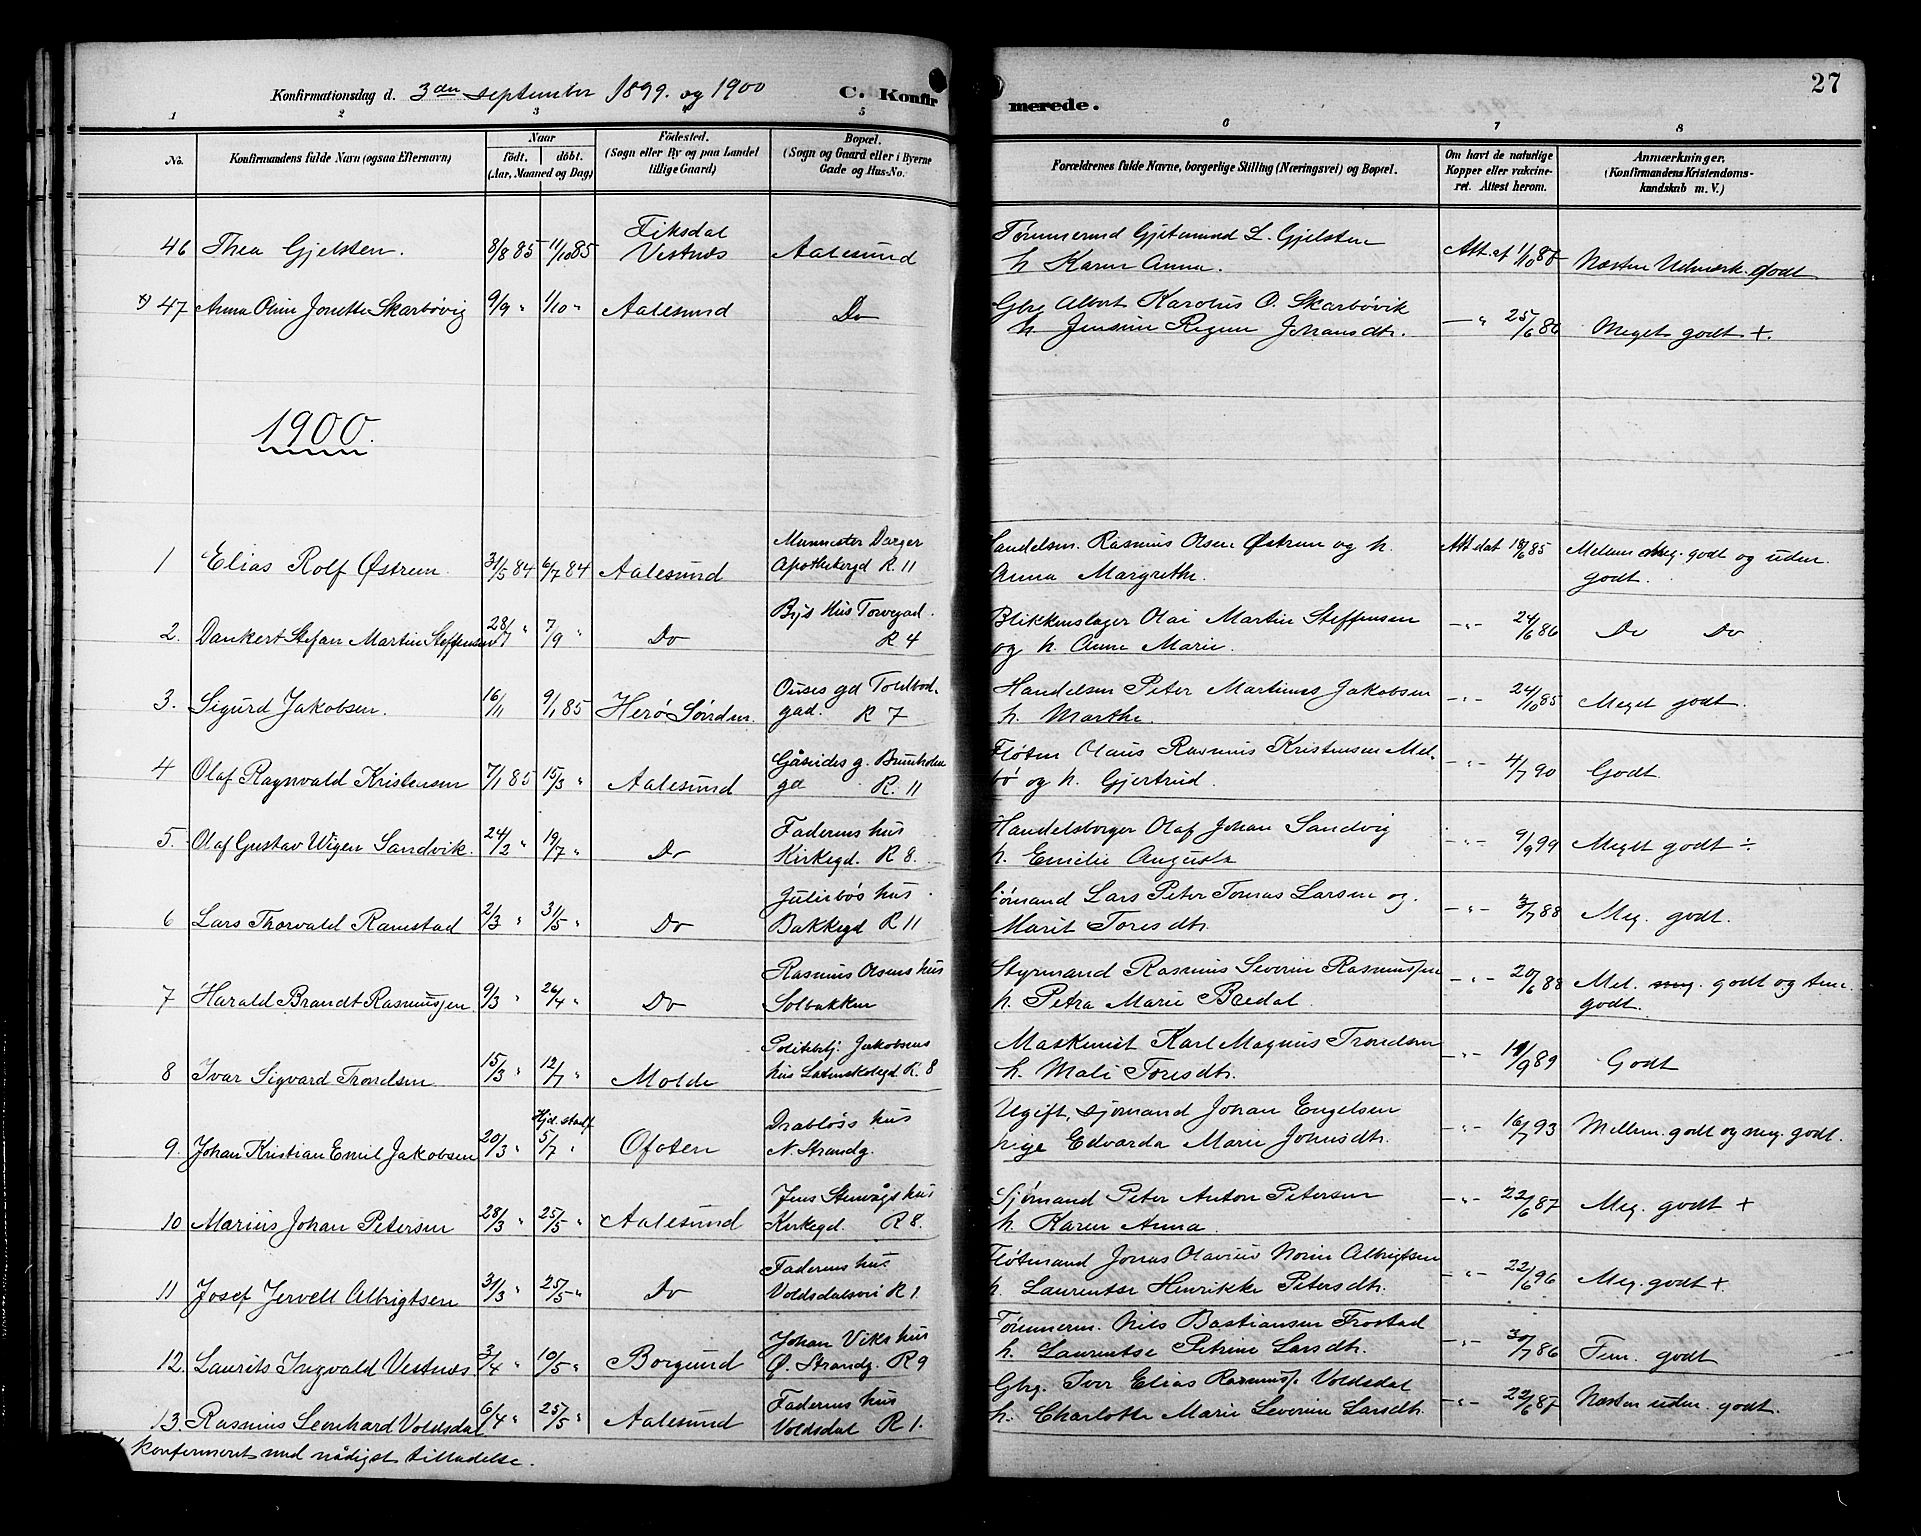 27
Konfirmationsdag d. 3den september 1899. og 1900 C. Konfir merede.
1 2 3 5 6 7 8
No. Konfirmandens fulde Navn (ogsaa Efternavn) Naar født. døbt. (Aar, Maaned og Dag) Fødested. (Sogn eller By og paa Landet tillige Gaard) Bopæl. (Sogn og Gaard eller i Byerne Gade og Hus-No. Forældrenes fulde Navne, borgerlige Stilling (Næringsvei) og Bopæl. Om havt de naturlige Kopper eller vakcineret. Attest herom. Anmærkninger. (Konfirmandens Kristendomskundskab m. V.)
Fiksdal Tømmermd Gjetmund L. Gjelsten
46 Thea Gjelsten. 8/8 85 11/10 85 Vestnes Aalesund h. Karen Anna. Att. af 1/10 Næsten Udmærk. godt
Gbg Albert Karolus O. Skarbøvik
x) 47 Anna Oline Jonette Skarbøvig 9/9 " 1/10 " Aalesund Do h. Jensine Regine Johansdtr. — " 25/6 86 Meget godt +.
1900.
Munnester Handelsm. Rasmus Olsen Østrem og h.
1 Elias Rolf Østrem. 31/5 84 6/7 84 Aalesund Apothekergd R. 11 Anna Margrethe. Att dat 18/6 85 Mellem Meg. godt og uden. godt.
Bys hus Torvegad. Blikkenslager Olai Martin Steffensen
2. Dankert Stefan Martin Steffensen 28/7 " 7/9 " Do R 4 og h. Anne Marie. -"- 24/6 86 Do Do
Ouses gd Toldbod. Handelsm Peter Martinus Jakobsen
3. Sigurd Jakobsen. 16/11 9/1 85 Herø Søndm. gad. R 7 h. Marthe. -"- 24/10 85 Meget godt.
Gåseides g. Brunholm Fløtm Olaus Rasmus Kristensen Mel-
4 Olaf Ragnvald Kristensen 7/1 85 15/3 " Aalesund gd R. 11 bø og h. Gjertrud. -"- 4/7 90 Godt.
Faderens hus Handelsborger Olaf Johan Sandvig
5. Olaf Gustav Wigen Sandvik. 24/2 " 19/7 " Do Kirkegd. R 8. h. Emilie Augusta -"- 9/9 99 Meget godt ÷
Juliebøs hus. Sømand Lars Peter Tomas Larsen og.
6 Lars Thorvald Ramstad 2/3 " 31/5 " Do Bakkegd R 11 Marit Toresdtr. -"- 3/7 88 Meg. godt.
Rasmus Olsens hus Styrmand Rasmus Severin Rasmussen
7 Harald Brandt Rasmussen 9/3 " 26/4 " Do Solbakken h. Petra Marie Bredal. -"- 20/6 88 Mel. meg. godt og tem. godt.
Politibtj. Jakobsens Maskinist Karl Magnus Trondsen
8 Ivar Sigvard Trondsen 15/3 " 12/7 " Molde hus Latinskolegd R. 8 h. Mali Toresdtr. -"- 19/9 89 Godt
Hjd. stadf Drabløs hus Ugift, sjømand Johan Engelsen
9. Johan Kristian Emil Jakobsen 20/3 " 5/7 " Ofoten N. Strandg. pige Edvarda Marie Johnsdtr. -"- 16/7 93 Mellem. godt og meg. godt.
Jens Stenvågs hus Sjømand Peter Anton Petersen
10 Marius Johan Petersen 28/3 " 25/5 " Aalesund Kirkegd. R 8. h. Karen Anna. -"- 22/6 87 Meg. godt +
Faderens hus Fløtmand Jonas Olavius Norin Albrigtsen
11 Josef Jervell Albrigtsen 31/3 " 25/5 " Do Voldsdalsvei R 1. h. Laurentse Henrikke Petersdtr. -"- 22/6 96 Meg. godt +.
Johan Viks hus Tømmerm. Nils Bastiansen Frostad
12. Laurits Ingvald Vestnes 3/4 " 10/5 " Borgund Ø. Strandg. R 9 h. Laurentse Petrine Larsdtr. -"- 30/7 86 Tem. godt
Faderens hus Gbg. Iver Elias Rasmuss. Voldsdal
13. Rasmus Leonhard Voldsdal 6/4 " 25/5 " Aalesund Voldsdal R 1. h. Charlotte Marie Severine Larsdtr. -"- 22/6 87 Næsten uden. godt.
konfirmeret med nådigst tilladelse.